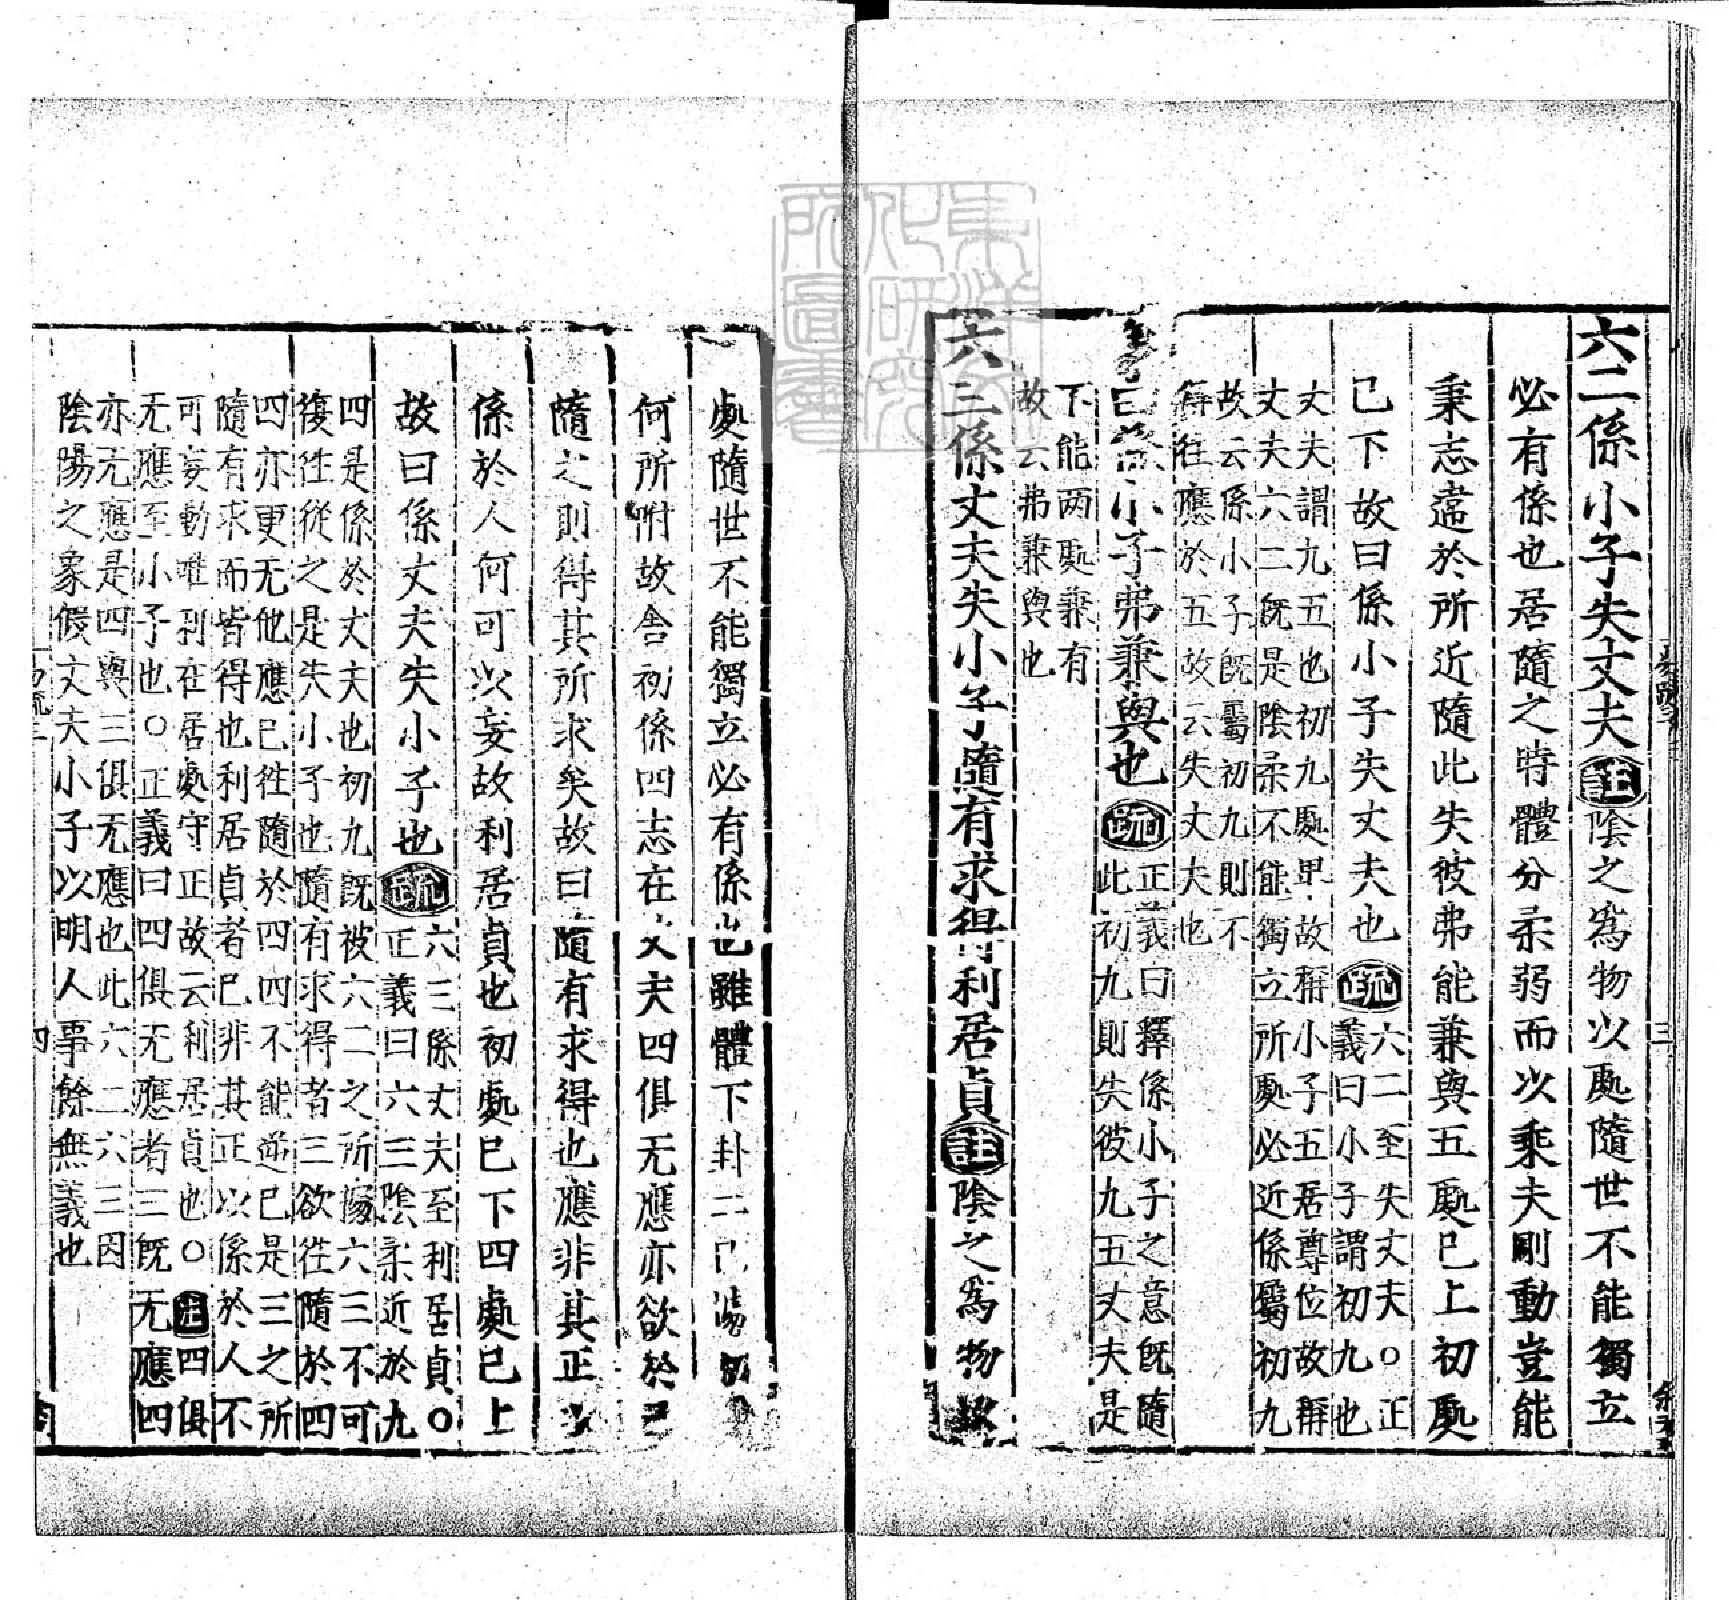 六二係小子失丈夫註陰之爲物以處隨世不能獨立
必有係也居隨之時體分柔弱而以乘夫剛動豈能
秉志違於所近隨此失彼弗能兼與五處巳上初處
己下故曰係小子失丈夫也疏
六二至失丈夫○正
義曰小子謂初九也
丈夫謂九五也初九處卑故稱小子五居尊位故稱
丈夫六二既是陰柔不能獨立所處必近係屬初九
故云係小子既屬初九則不
得往應於五故云失丈夫也
小子弗兼與也疏
正義曰釋係小子之意既隨
此初九則失彼九五丈夫是
下能两處兼有
故云弗兼與也
六三係丈夫失小子隨有求得利居貞註陰之爲物
處隨世不能獨立必有係也雖體下卦二
何所附故舎初係四志在丈夫四俱无應亦欲於己
隨之則得其所求矣故曰隨有求得也應非其正以
係於人何可以妄故利居貞也初處巳下四處己上
故曰係丈夫失小子也疏
六三係丈夫至利居貞○
正義曰六三陰柔近於九
四是係於丈夫也初九既被六二之所據六三不可
復往從之是失小子也隨有求得者三欲往隨於四
四亦更无他應己往隨於四四不能逆己是三之所
隨有求而皆得也利居貞者巳非其正以係於人不
可妄動唯利在居處守正故云利居貞也○註四俱
无應至小子也○正義曰四俱无應者三既无應四
亦无應是四與三俱无應也此六二六三因
陰陽之象假丈夫小子以明人事餘無義也